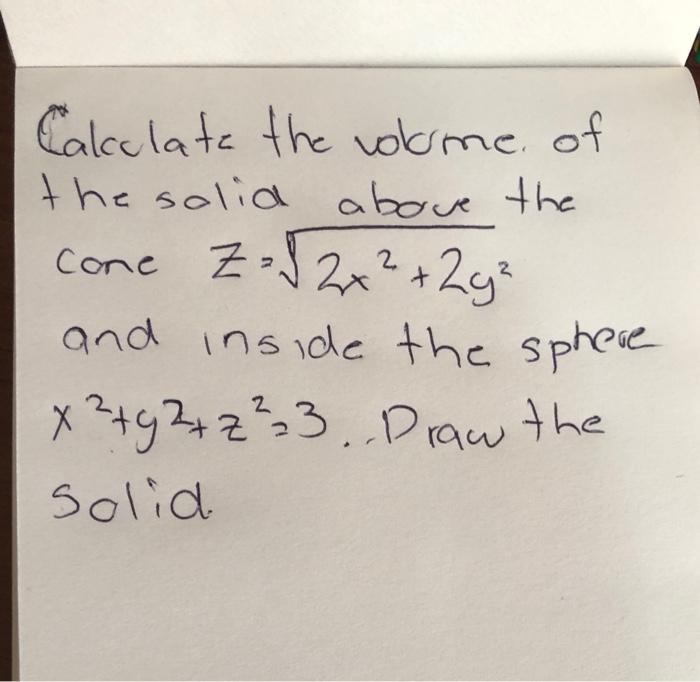 Calculate the volume. of
the solid above the
cone z=√2x²+2y²
and inside the sphere
x²+y²+z²=3...Draw the
solid